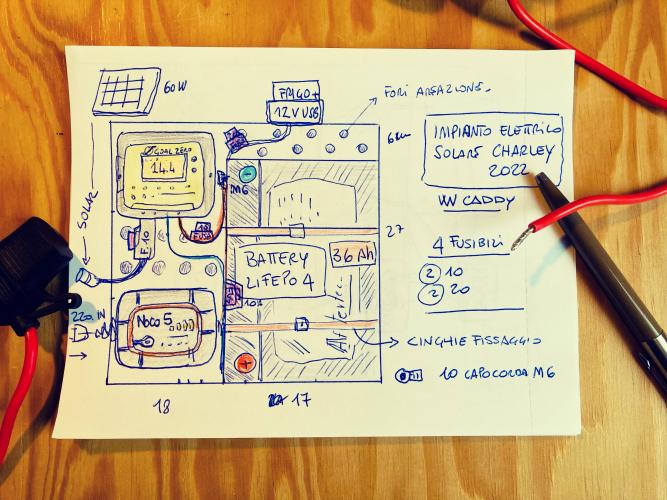 60W
FRIGO +
12V USB
FORI AREAZIONE.
IMPIANTO ELETTRICO
SOLARE CHARLEY
2022
VW CADDY
4 FUSIBILI
2 10
2 20
GOAL ZERO
14.4
M6
SOLAR
F. 10
FUSE
27
BATTERY
LIFEPO4
36 Ah
10A
220. IN
NOCO 5
CINGHIE FISSAGGIO
10 CAPOCORDA M6
18
17